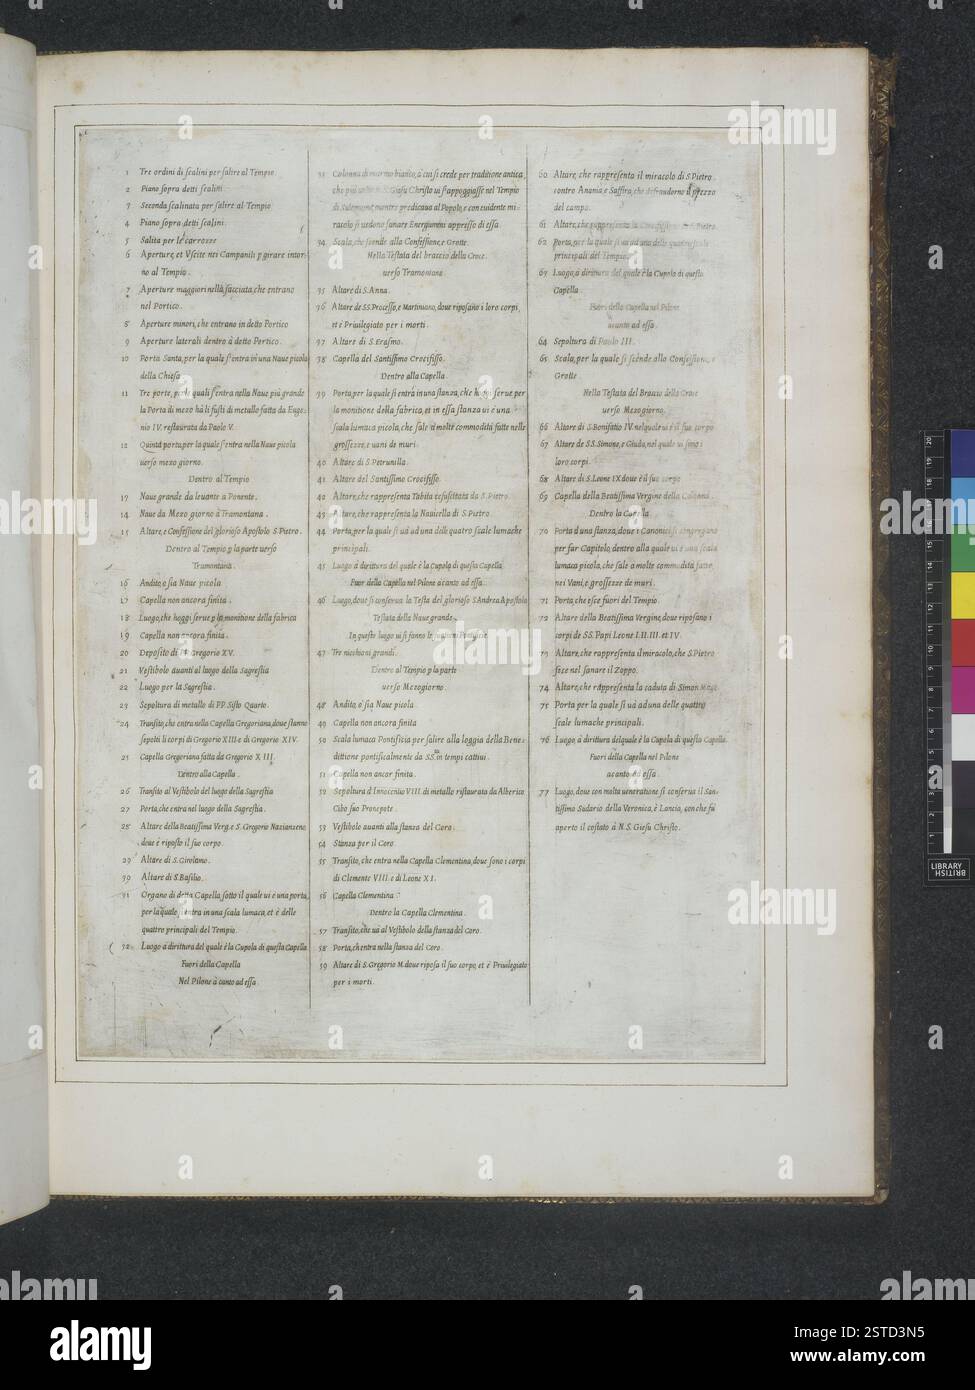 1 Tre ordini di scalini per salire al Tempio
2 Piano sopra detti scalini
3 Seconda scalinata per salire al Tempio
4 Piano sopra detti scalini.
5 Salita per le carozze
6 Aperture, et Vscite nei Campanili p girare intor-
no al Tempio.
7 Aperture maggiori nella facciata, che entrano
nel Portico.
8 Aperture minori, che entrano in detto Portico
9 Aperture laterali dentro à detto Portico.
10 Porta Santa, per la quale s'entra in una Naue picola
della Chiesa
11 Tre porte, per le quali s'entra nella Naue più grande
la Porta di mezo hà li fusti di metallo fatta da Euge-
nio IV. restaurata da Paolo V.
12 Quinta porta, per la quale s'entra nella Naue picola
uerso mezo giorno.
Dentro al Tempio
13 Naue grande da leuante a Ponente.
14 Naue da Mezo giorno à Tramontana.
15 Altare, e Confessione del glorioso Apostolo S. Pietro.
Dentro al Tempio p la parte uerso
Tramontana.
16 Andito, o sia Naue picola
17 Capella non ancora finita.
18 Luogo, che hoggi serue p la monitione della fabrica
19 Capella non ancora finita.
20 Deposito di Gregorio XV.
21 Vestibolo auanti al luogo della Sagrestia
22 Luogo per la Sagrestia.
23 Sepoltura di metallo di PP. Sisto Quarto.
24 Transito, che entra nella Capella Gregoriana, doue stanno
sepolti li corpi di Gregorio XIII. e di Gregorio XIV.
25 Capella Gregoriana fatta da Gregorio XIII.
Dentro alla Capella.
26 Transito al Vestibolo del luogo della Sagrestia
27 Porta, che entra nel luogo della Sagrestia.
28 Altare della Beatissima Verg. e S. Gregorio Nazianzeno
doue è riposto il suo corpo.
29 Altare di S. Girolamo.
30 Altare di S. Basilio.
31 Organo di detta Capella, sotto il quale ui è una porta,
per la quale s'entra in una scala lumaca, et è delle
quattro principali del Tempio.
32 Luogo à dirittura del quale è la Cupola di questa Capella
Fuori della Capella
Nel Pilone à canto ad essa
33 Colonna di marmo bianco, à cui si crede per traditione antica,
che più uolte N.S. Giesu Christo ui s'appoggiasse nel Tempio
di Salomone, mentre predicaua al Popolo, e con euidente mi-
racolo si uedono sanare Energumeni appresso di essa
34 Scala, che scende alla Confessione, e Grotte.
Nella Testata del braccio della Croce
uerso Tramontana
35 Altare di S. Anna.
36 Altare de SS. Processo, e Martiniano, doue riposano i loro corpi,
et è Priuilegiato per i morti.
37 Altare di S. Erasmo.
38 Capella del Santissimo Crocifisso.
Dentro alla Capella
39 Porta, per la quale si entra in una stanza, che hoggi serue per
la monitione della fabrica, et in essa stanza ui è una
scala lumaca picola, che sale à molte commodità fatte nelle
grossezze, e uani de muri.
40 Altare di S. Petrunilla.
41 Altare del Santissimo Crocifisso.
42 Altare, che rappresenta Tabita resuscitata da S. Pietro.
43 Altare, che rappresenta la Nauicella di S. Pietro.
44 Porta, per la quale si uà ad una delle quattro scale lumache
principali.
45 Luogo à dirittura del quale è la Cupola di questa Capella
Fuor della Capella nel Pilone a canto ad essa
46 Luogo, doue si conserua la Testa del glorioso S. Andrea Apostolo
Testata della Naue grande.
In questo luogo ui si fanno le funtioni Pontificie
47 Tre nicchioni grandi.
Dentro al Tempio p la parte
uerso Mezogiorno.
48 Andito, o sia Naue picola.
49 Capella non ancora finita
50 Scala lumaca Pontificia per salire alla loggia della Bene-
dittione pontificalmente da SS. in tempi cattiui.
51 Capella non ancor finita.
52 Sepoltura d'Innocentio VIII. di metallo ristaurata da Alberico
Cibo suo Pronepote.
53 Vestibolo auanti alla stanza del Coro.
54 Stanza per il Coro
55 Transito, che entra nella Capella Clementina, doue sono i corpi
di Clemente VIII. e di Leone XI.
56 Capella Clementina
Dentro la Capella Clementina.
57 Transito, che uà al Vestibolo della stanza del Coro.
58 Porta, ch'entra nella stanza del Coro.
59 Altare di S. Gregorio M. doue riposa il suo corpo, et è Priuilegiato
per i morti.
60 Altare, che rappresenta il miracolo di S. Pietro.
contro Anania, e Saffira, che defraudorno il prezzo
del campo.
61 Altare, che rappresenta la Crocifissione di S. Pietro.
62 Porta, per la quale si uà ad una delle quattro scale
principali del Tempio.
63 Luogo, à dirittura del quale è la Cupola di questa
Capella.
Fuori della Capella nel Pilone
acanto ad essa.
64 Sepoltura di Paulo III.
65 Scala, per la quale si scende alla Confessione, e
Grotte
Nella Testata del Braccio della Croce
uerso Mezogiorno.
66 Altare di S. Bonifatio IV. nel quale ui è il suo corpo
67 Altare de SS. Simone, e Giuda, nel quale ui sono i
loro corpi.
68 Altare di S. Leone IX. doue è il suo corpo
69 Capella della Beatissima Vergine della Colonna.
Dentro la Capella.
70 Porta d'una stanza, doue i Canonici si congregano
per far Capitolo, dentro alla quale ui è una scala
lumaca picola, che sale a molte commodità fatte
nei Vani, e grossezze de muri.
71 Porta, che esce fuori del Tempio.
72 Altare della Beatissima Vergine, doue riposano i
corpi de SS. Papi Leone I. II. III. et IV.
73 Altare, che rappresenta il miracolo, che S. Pietro
fece nel sanare il Zoppo.
74 Altare, che rappresenta la caduta di Simon Mago
75 Porta per la quale si uà ad una delle quattro
scale lumache principali.
76 Luogo, à dirittura del quale è la Cupola di questa Capella.
Fuori della Capella nel Pilone
a canto ad essa.
77 Luogo, doue con molta ueneratione si conserua il San-
tissimo Sudario della Veronica, è Lancia, con che fù
aperto il costato à N.S. Giesu Christo.
BRITISH
LIBRARY
alamy
Image ID: 2STD3N5
www.alamy.com